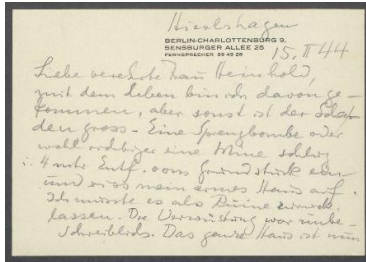 Hiershagen
BERLIN-CHARLOTTENBURG 9,
SENSBURGER ALLEE 25
FERNSPRECHER 99 49 28
15. II 44
Liebe verehrte Frau Reinhold,
mit dem Leben bin ich davon ge-
kommen, aber sonst ist der Scha-
den gross - Eine Sprengbombe oder
wohl richtiger eine Mine schlug
i. 4 mtr Entf. vom Grundstück ein
und riss mein armes Haus auf.
Ich musste es als Ruine zurück
lassen. Die Verwüstung war unbe-
schreiblich. Das ganze Haus ist nun